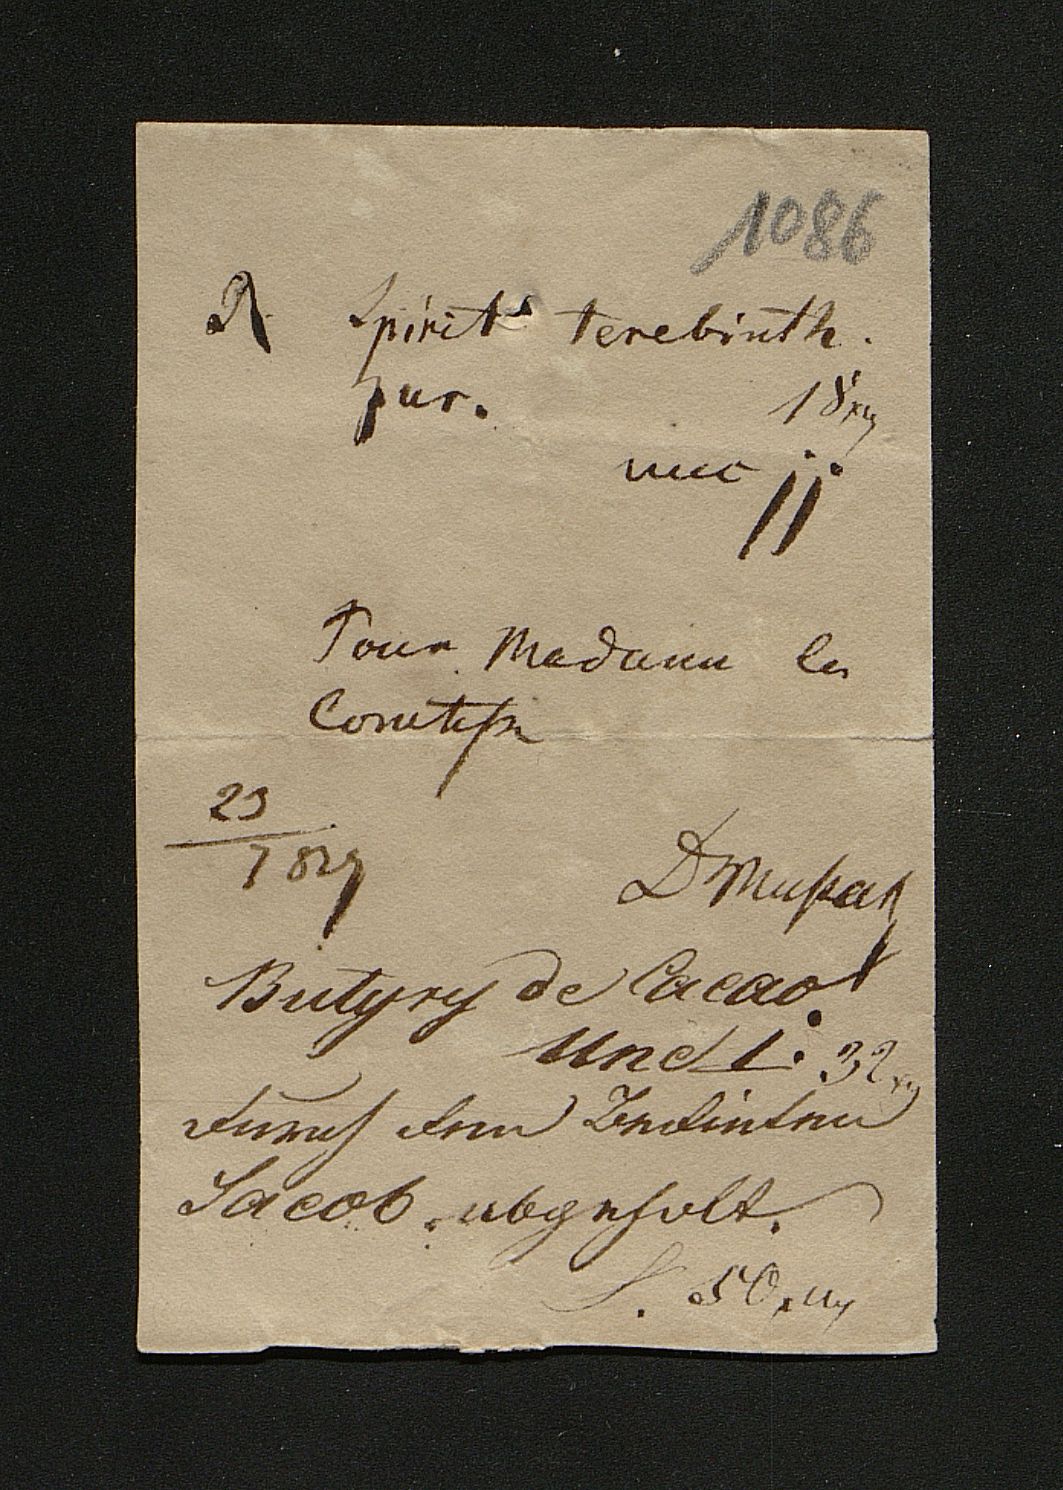 1086
R Spirit⁵ terebinth.
pur. 18 xr
unc jj
Pour Madame la
Comtesse
29
7 829
D
Butyry de Cacao.
Unc I. 32 xr
durch den Bedienten
Jacob abgeholt.
S. 50 xr